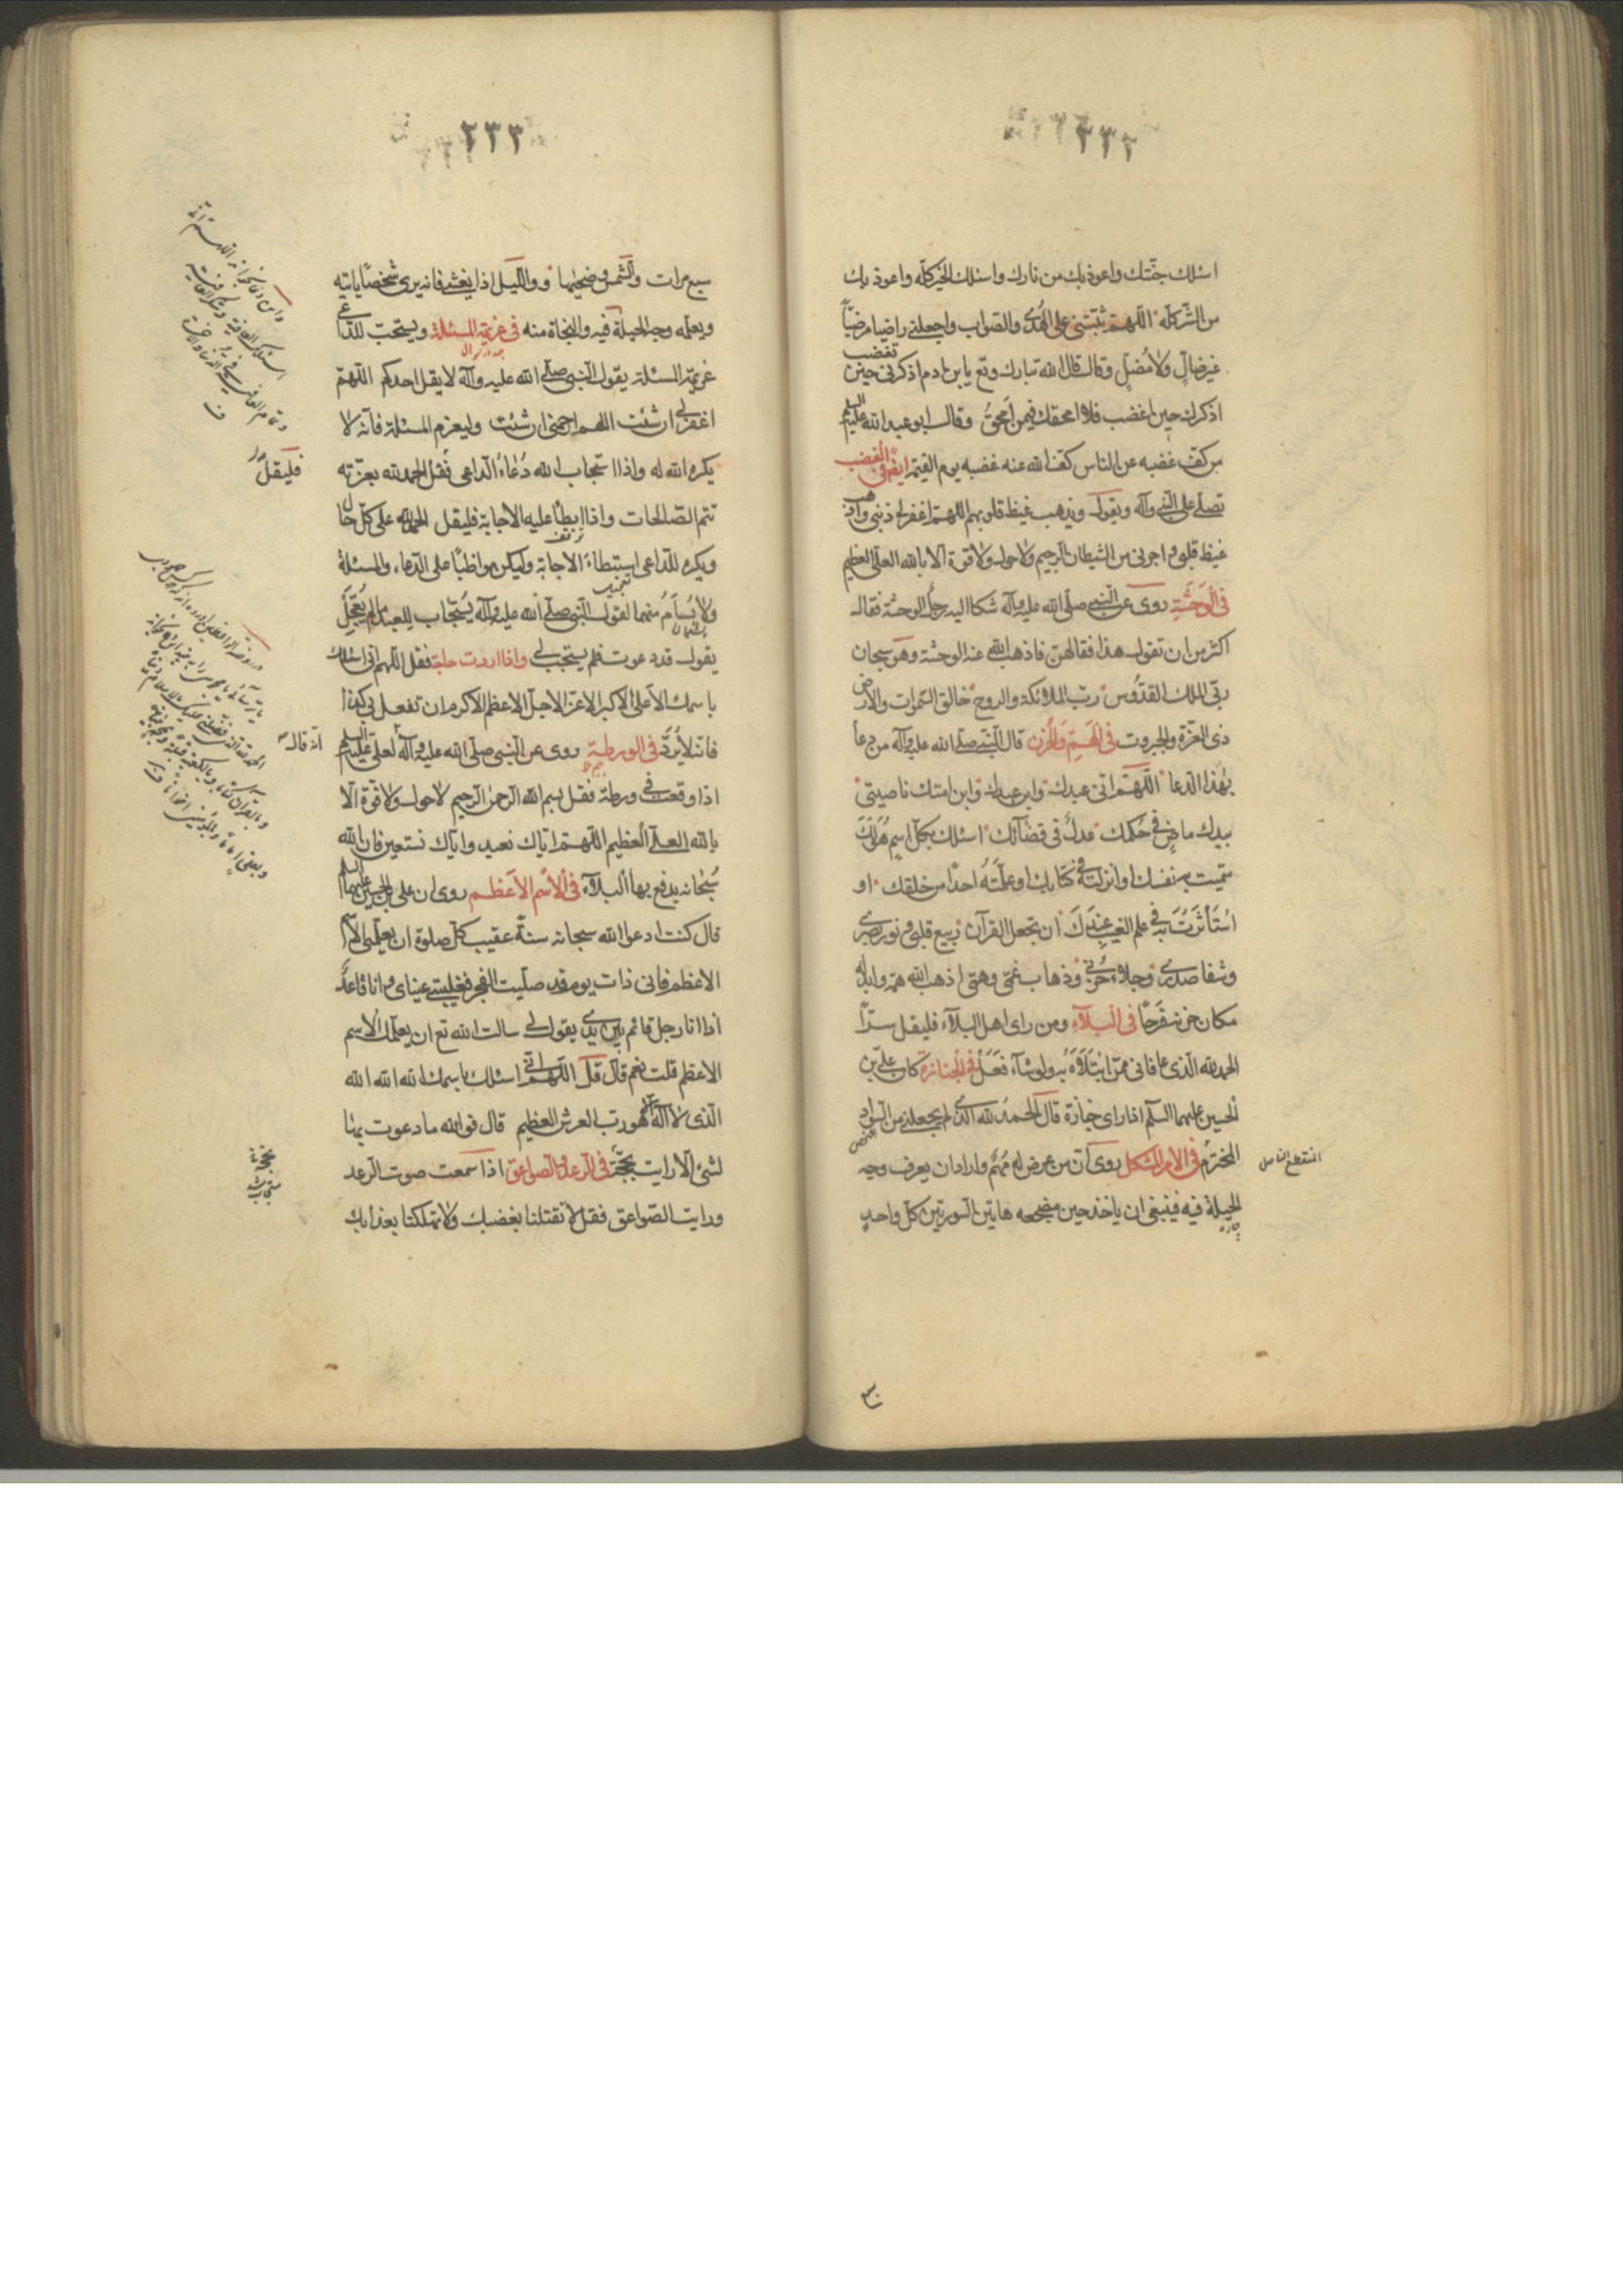 ٢٣٢
اسئلك جنّتك واعوذ بك من نارك واسئلك الخير كلّه واعوذ بك
من الشّر كلّه اللّهمّ ثبّتنى على الهُدى والصّواب واجعلنى راضيا مرضيّاً
غير ضالٍّ ولا مُضلٍّ وقال قال الله تبارك وتع يا بن ادم اذكرنى حين تغضب
اذكرك حين اغضب فلا امحقك فيمن اَمحقُ وقال ابو عبد الله عليه السلم
من كفّ غضبه عن الناس كفّ الله عنه غضبه يوم القيمة ايضا فى الغضب
تصلّى على النّبى وآله ويقول ويذهب غيظ قلوبهم اللهمّ اغفر لى ذنبى واذهب
غيظ قلبى واجرنى من الشيطان الرّجيم ولا حول ولا قوة الا بالله العلىّ العظيم
فى الوَحْشَةِ روى عن النّبى صلّى الله عليه وآله شكا اليه رجل الوحشة فقال
اكثر من ان تقول هذا فقالهنّ فاذهب الله عنه الوحشة وهو سبحان
ربّى الملك القدّوس ربّ الملائكة والروح خالق السّموات والارض
ذى العزّة والجبروت فى الهَمِّ وَالحُزن قال النّبى صلّى الله عليه وآله من دعا
بهٰذا الدّعا اللّهمّ انّى عبدك وابن عبدك وابن امتك ناصيتى
بيدك ماضٍ فىّ حكمك عدلٌ فىّ قضآئك اسئلك بكلّ اسمٍ هُوَ لَكَ
سمّيت به نفسك او انزلته فى كتابك او علّمتَهُ احدًا من خلقك او
اسْتَأثَرْتَ بِه فى علم الغيب عِنْدَكَ ان تجعل القرآن ربيع قلبى ونور بصرى
وشفا صدرى وجلاء حُزنى وذهاب غمّى وهمّى اذهب الله همّه وابدله
مكان حزنه فَرَحًا فى البلآءِ ومن راى اهل البلآء فليقل سرّاً
الحمد لله الّذى عافانى ممّن ابْتَلَاهُ به ولو شآء فَعَلَ فى الجنازة كان علىّ بن
الحسين عليهما السلم اذا راى جنازة قال الحمد لله الّذى لم يجعلنى من السّواد
المخترَم فى الامر المُشكل روى انّ من عرض له مُهمٌّ واراد ان يعرف وجه
الحيلة فيه فينبغى ان ياخذ حين مضجعه هاتين السّورتين كلّ واحدٍ
٢٣٣
سبع مرات والشّمس وضحيٰها و واللّيل اذا يغشى فانه يرى شخصًا ياتيه
ويعلّمه وجه الحيلة فيه والنجاة منه فى عزيمة المسئلة ويستحبّ للدّاعى
عزيمة المسئلة يقول النّبى صلّى الله عليه وآله لا يقل احدكم اللّهمّ
اغفر لى ان شئت اللهم ارحمنى ان شئت وليعزم المسئلة فانّه لا
يكره الله له واذا استجاب الله دُعاءُ الدّاعى فليقل الحمد لله بعزّته
تتم الصّالحات واذا ابطأ عليه الاجابة فليقل الحمد لله على كلّ حال
ويكره للدّاعى استبطاءَ الاجابة وليكن مواظبًا على الدّعاء والمسئلة
ولا يُسأمُ منهما لقول النّبى صلّى الله عليه وآله يُستجاب للعبد ما لم يُعَجِّل
يقول قد دعوت فلم يستجب لى واذا اردت حاجة فقل اللّهم انى اسئلك
باسمك الاعلى الاكبر الاعزّ الاجلّ الاعظم الاكرم ان تفعل بى كذا
فانّه لا يُردّ فى الورطة روى عن النّبى صلّى الله عليه وآله لعلىّ عليه السلم
اذا وقعت فى ورطة فقل بسم الله الرّحمن الرّحيم لا حول ولا قوّة الّا
بالله العلىّ العظيم اللّهمّ ايّاك نعبد وايّاك نستعين فان الله
سُبحانه يدفع بها البلآء فى الاسْم الاَعظم روى ان على بن الحسين عليهما السلم
قال كنت ادعوا الله سبحانه سنةً عقيب كلّ صلوة ان يعلّمنى الاسم
الاعظم فانى ذات يوم قد صلّيت الفجر فغلبتنى عيناى وانا قاعدٌ
اذا انا رجل قائم بين يدىّ يقول لى سالت الله تع ان يعلّمك الاسم
الاعظم قلت نعم قال قل اللّهمّ انّى اسئلك باسمك الله الله الله
الّذى لا اله الّا هو ربّ العرش العظيم قال فوالله ما دعوت بها
لشئ الّا رايت نجحته فى الرّعد والصّواعق اذا سمعت صوت الرّعد
ورايت الصّواعق فقل لا تقتلنا بغضبك ولا تهلكنا بعذابك
فليقل
انّه قال